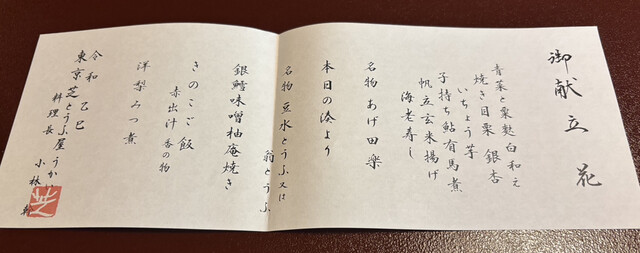 御献立 花
青菜と栗麩白和え
焼き目栗 銀杏
いちょう芋
子持ち鮎有馬煮
帆立玄米揚げ
海老寿し
名物 あげ田楽
本日の湊より
名物 豆水とうふ 又は
翁とうふ
銀鱈味噌柚庵焼き
きのこご飯
赤出汁 香の物
洋梨みつ煮
令和 乙巳
東京 芝とうふ屋うかい
料理長 小林 幹
芝